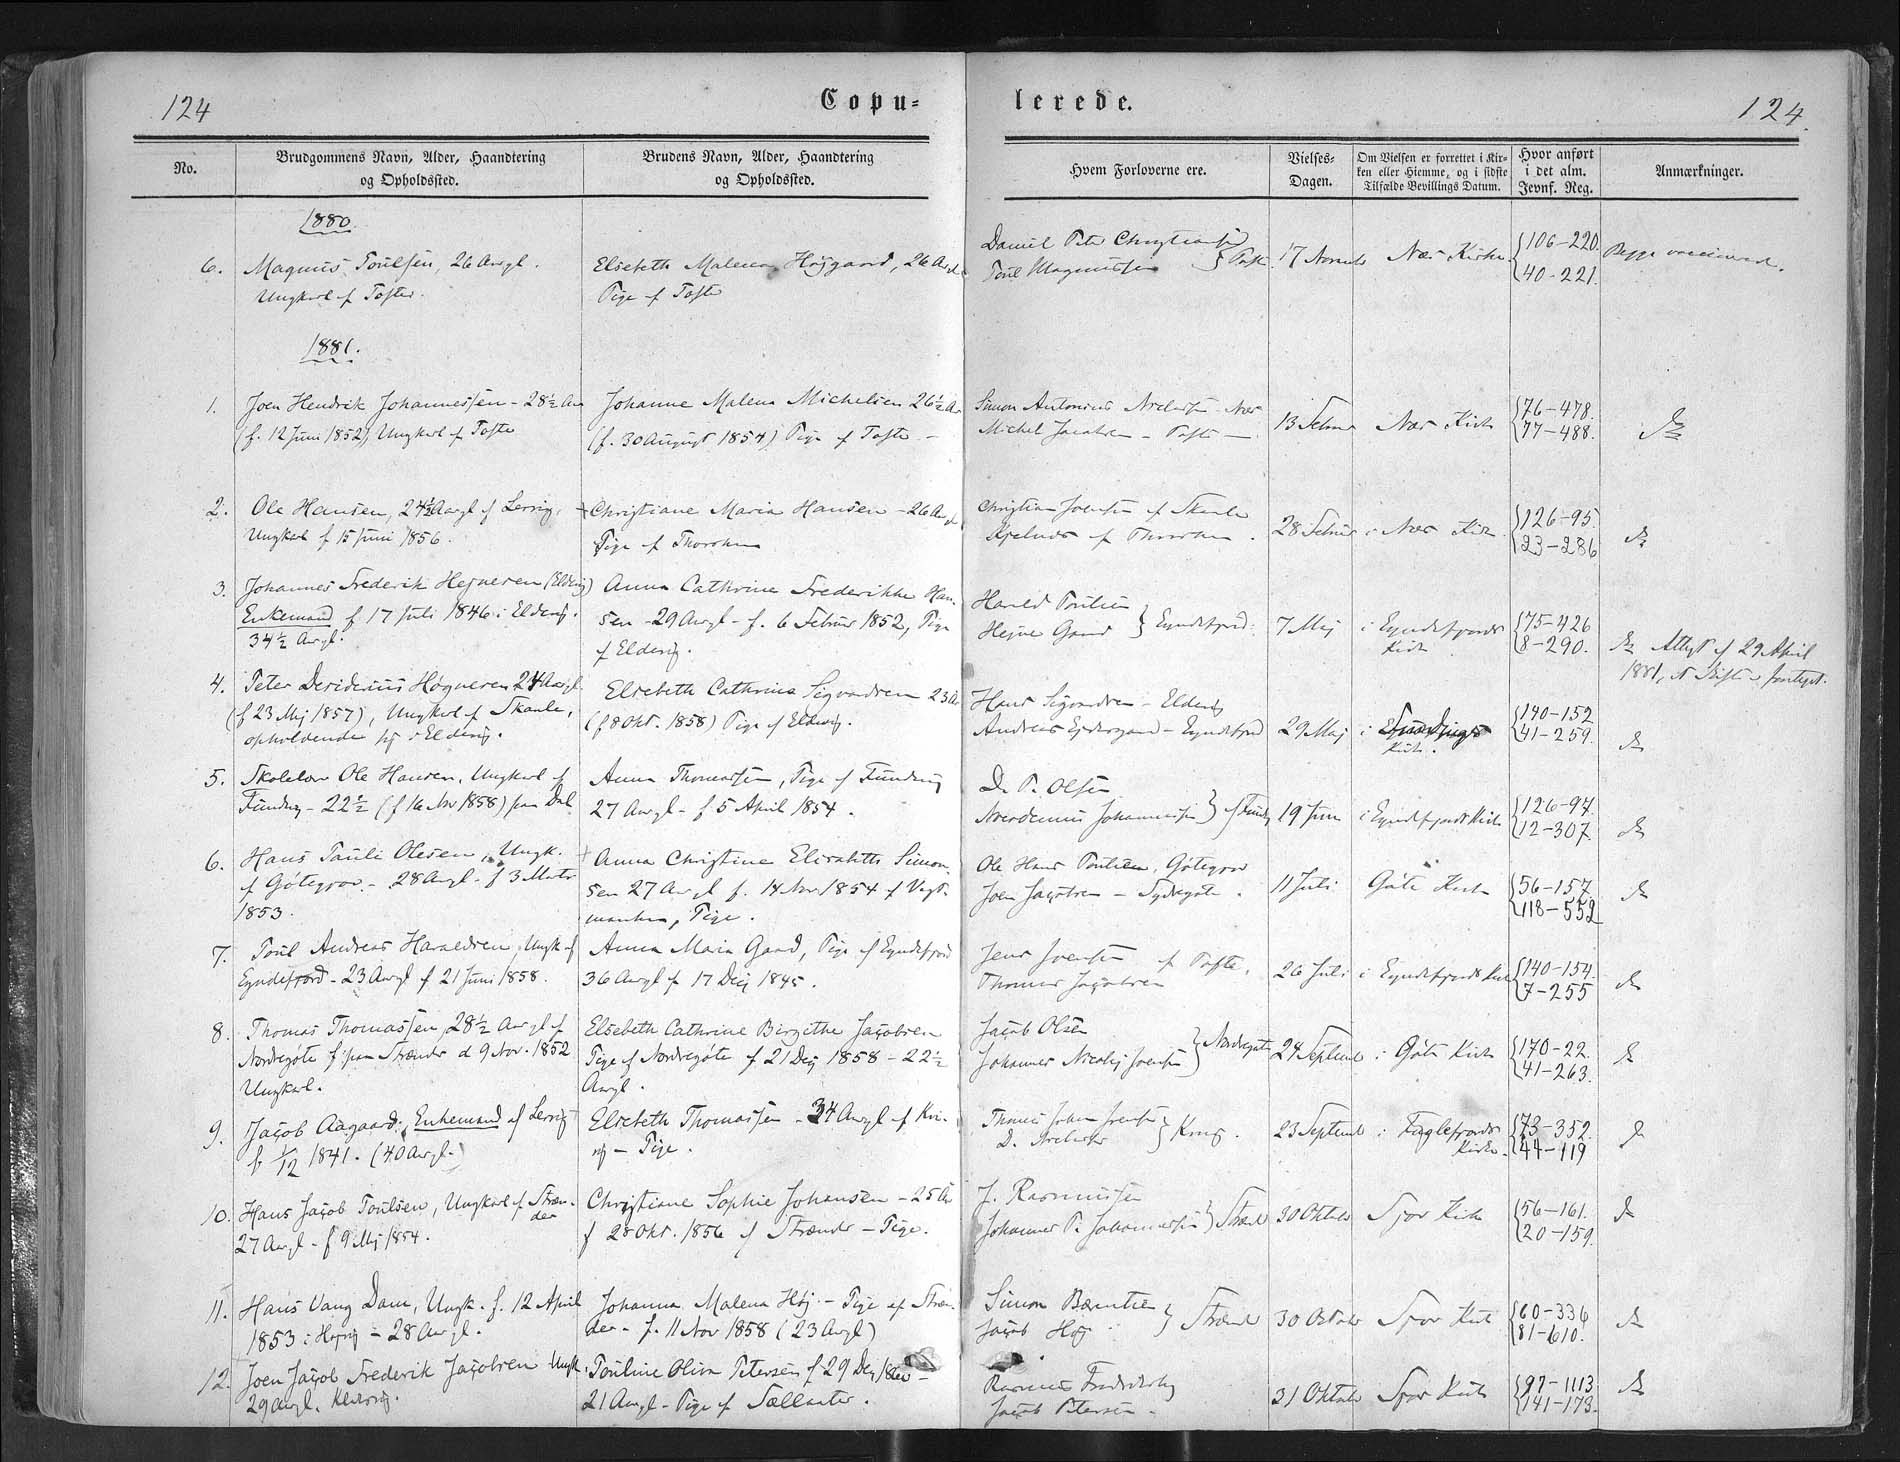 124
Copu=
lerede.
124.
No.
Brudgommens Navn, Alder, Haandtering
og Opholdssted.
Brudens Navn, Alder, Haandtering
og Opholdssted.
Hvem Forloverne ere.
Vielses-
Dagen.
Om Vielsen er forrettet i Kir-
ken eller Hiemme, og i sidste
Tilfælde Bevillings Datum.
Hvor anført
i det alm.
Jevnf. Reg.
Anmærkninger.
1880.
6. Magnus Poulsen, 26 Aar gl.
Ungkarl af Tofter.
Elsebeth Malena Høygaard, 26 Aar
Pige af Tofte
Daniel Peter
Poul Magnussen } Tofte
17 Novemb
Næs Kirke
106-220.
40-221.
Begge vaccinered.
1881.
1. Joen Hendrik Johannessen - 28½ Aar
(f. 12 Juni 1852) Ungkarl af Tofte
Johanne Malena Michelsen 26½ Aar
(f. 30 August 1854) Pige af Tofte -
Simon Antonius Næs
Michel Jacobsen - Tofte -
13 Februar
Næs Kirke
76-478.
77-488.
do
2. Ole Hansen, 24½ Aar gl af Lervig,
Ungkarl f 15 Juni 1856.
Christiane Maria Hansen - 26 Aar
Pige af
Christian Joensen af Skaale
af
28 Februar
i Næs Kirke
126-95.
23-286
do
3. Johannes Frederik Hejnesen (Eldevig)
Enkemand f 17 Juli 1846 i Eldevig.
34½ Aar gl.
Anna Cathrine Frederikke Han-
sen - 29 Aar gl - f. 6 Februar 1852, Pige
af Eldevig.
Harald Poulsen
Hejne Gaard } Eyndefjord.
7 Maj
i Eyndefjords
Kirke
75-426
8-290.
do Attest af 29 April
1881, at Skifte
4. Peter Desiderius Høgnesen 24 Aar gl
(f 23 Maj 1857), Ungkarl af Skaale,
opholdende sig i Eldevig.
Elsebeth Cathrina Sigvardsen 23 Aar
(f 8 Okt. 1858) Pige af Eldevig.
Hans Sigvardsen - Eldevig
Andreas - Eyndefjord
29 Maj
Kirke.
140-152
41-259.
do
5. Skolelær Ole Hansen, Ungkarl af
Funding - 22½ (f 16 Nov 1858) fra Dal
Anna Thomassen, Pige af Funding
27 Aar gl - f 5 April 1854.
D. P. Olsen
Johannessen } Funding
19 Juni
i Eyndefjords Kirke
126-97.
12-307.
do
6. Hans Pauli Olesen, Ungk.
af Gøtegrov. - 28 Aar gl - f 3 Marts
1853.
Anna Christine Elisabeth Simon-
sen 27 Aar gl f. 14 Nov 1854 af Vest-
manhavn, Pige.
Ole Hans Poulsen, Gøtegrov
Joen Jacobsen - Sydregøte.
11 Juli
Gøte Kirke
56-157.
118-552
do
7. Poul Andreas Haraldsen, Ungk af
Eyndefjord - 23 Aar gl f 21 Juni 1858.
Anna Maria Gaard, Pige af Eyndefjord
36 Aar gl f 17 Dec 1845.
Jens Joensen af Tofte.
Thomas Jacobsen
26 Juli
i Eyndefjords Kirke
140-154.
7-255
do
8. Thomas Thomassen, 28½ Aar gl af
Nordregøte f: paa Strænder d 9 Nov. 1852
Ungkarl.
Elsebeth Cathrine Birgithe Jacobsen
Pige af Nordregøte f 21 Dec 1858 - 22½
Aar gl.
Jacob Olsen
Johannes Nicolaj Joensen } Nordregøte
24 Septemb
i Gøte Kirke
170-22.
41-263.
do
9. Jacob Aagaard, Enkemand af Lervig
f 1/12 1841. (40 Aar gl.)
Elsebeth Thomassen - 34 Aar gl af Kvi-
vig - Pige.
Thomas Johan Joensen
D. } Kvivig.
23 Septemb
i Fuglefjords
Kirke.
73-352.
44-419
do
10. Hans Jacob Poulsen, Ungkarl af Stræn-
der
27 Aar gl - f 9 Maj 1854.
Christiane Sophie Johansen - 25 Aar
f 28 Okt. 1856 af Strænder - Pige.
J. Rasmussen
Johannes P. Johannessen } Strænd
30 Oktober
Sjov Kirke
56-161.
20-159.
do
11. Hans Vang Dam, Ungk. f. 12 April
1853 i - 28 Aar gl.
Johanna Malena Høj - Pige af Stræn-
der - f. 11 Nov 1858 (23 Aar gl)
Simon Bærentsen
Jacob Høj } Strænd
30 Oktober
Sjov Kirke
60-336
81-610.
do
12. Joen Jacob Frederik Jacobsen Ungk
29 Aar gl.
Pouline Olivia Petersen f 29 Dec 1860 -
21 Aar gl - Pige af Sælletræ.
Rasmus
Jacob Petersen.
31 Oktober
Sjov Kirke
97-1113
141-173.
do